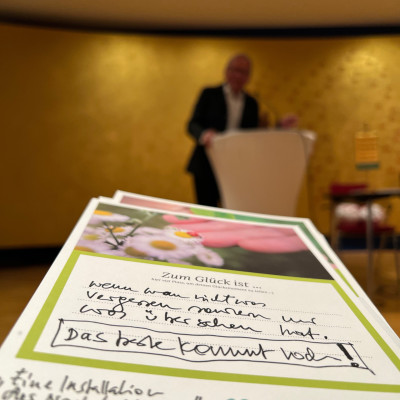 Zum Glück ist ...
wenn man nicht was
vergessen sondern nur
was übersehen hat.
Das beste kommt noch!
Eine Installation
des